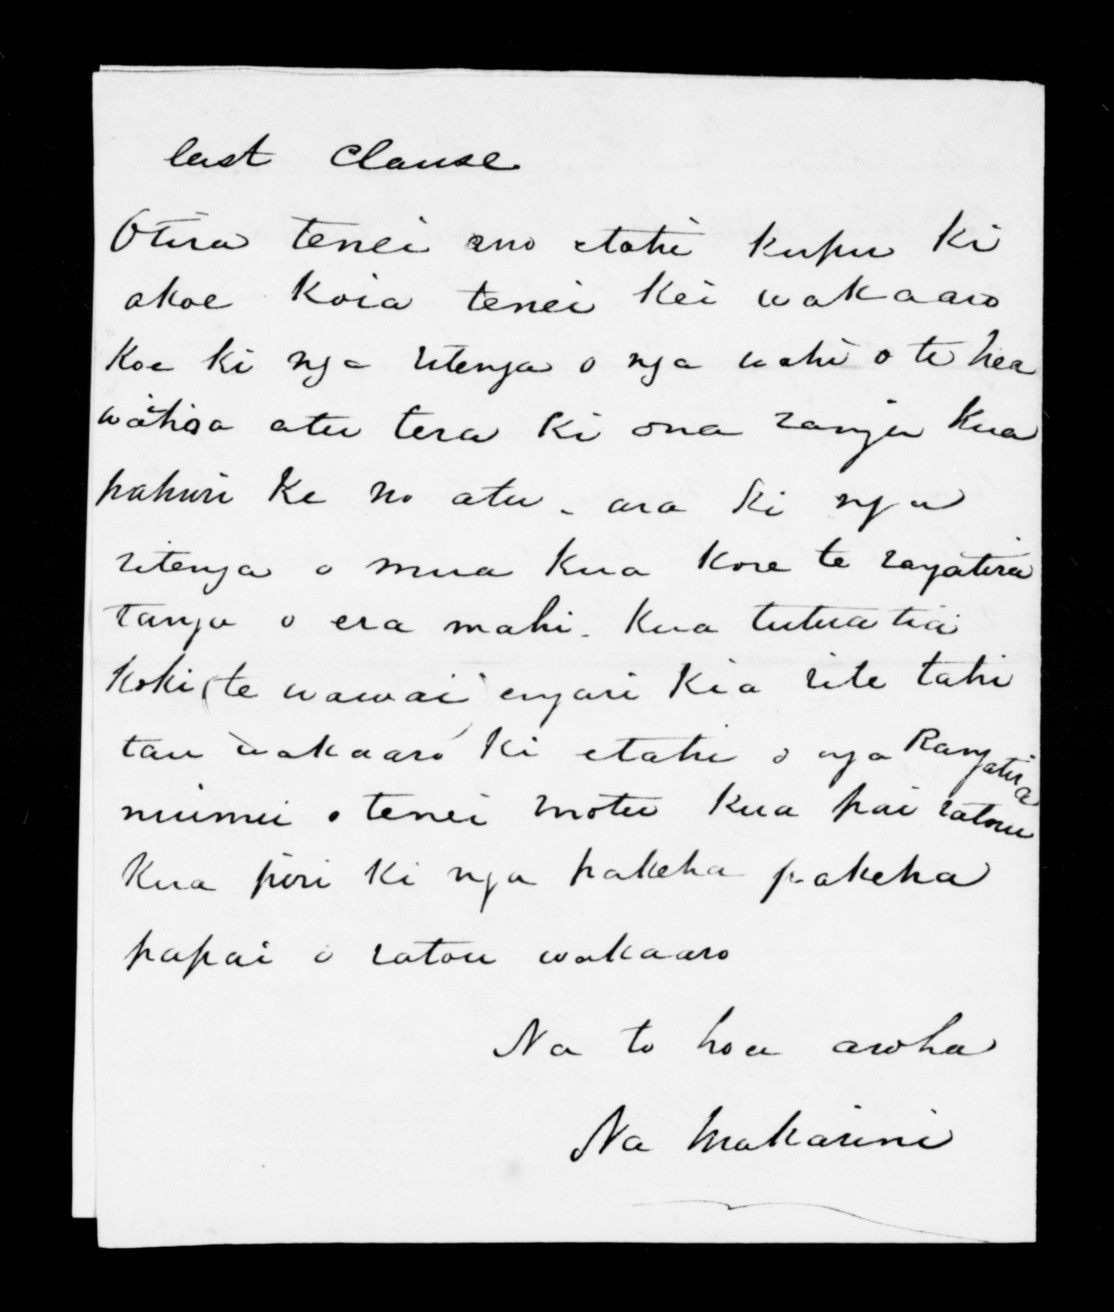 last Clause
Otira tenei ano etahi kupu ki
akoe koia tenei kei wakaaro
koe ki nga ritenga o nga wahi o te hea
wahia atu tera ki ona ranga kua
pahuri ke no atu - ara ki nga
ritenga o mua kua kore te rangatira
tanga o era mahi. kua tutua tia
koki (te wawai) engari kia rite tahi
tau wakaaro ki etahi o nga Rangatira
nunui o tenei motu kua pai ratou
kua piri ki nga pakeha pakeha
papai o ratou wakaaro
Na to hoa aroha
Na Makarini